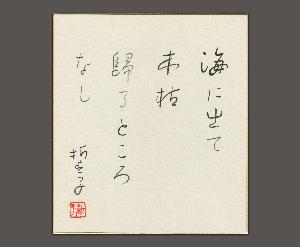 海に出て
木枯
歸るところ
なし